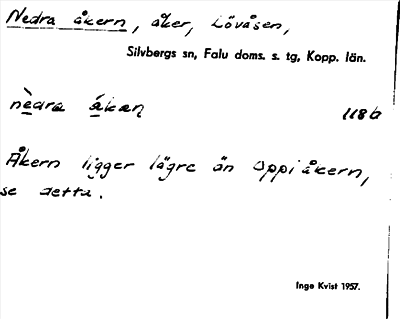 Nedra åkern, åker, Lövåsen,
Silvbergs sn, Falu doms. s. tg, Kopp. län.
nèdra åkaṇ 118b
Åkern ligger lägre än Oppiåkern,
se detta.
Inge Kvist 1957.